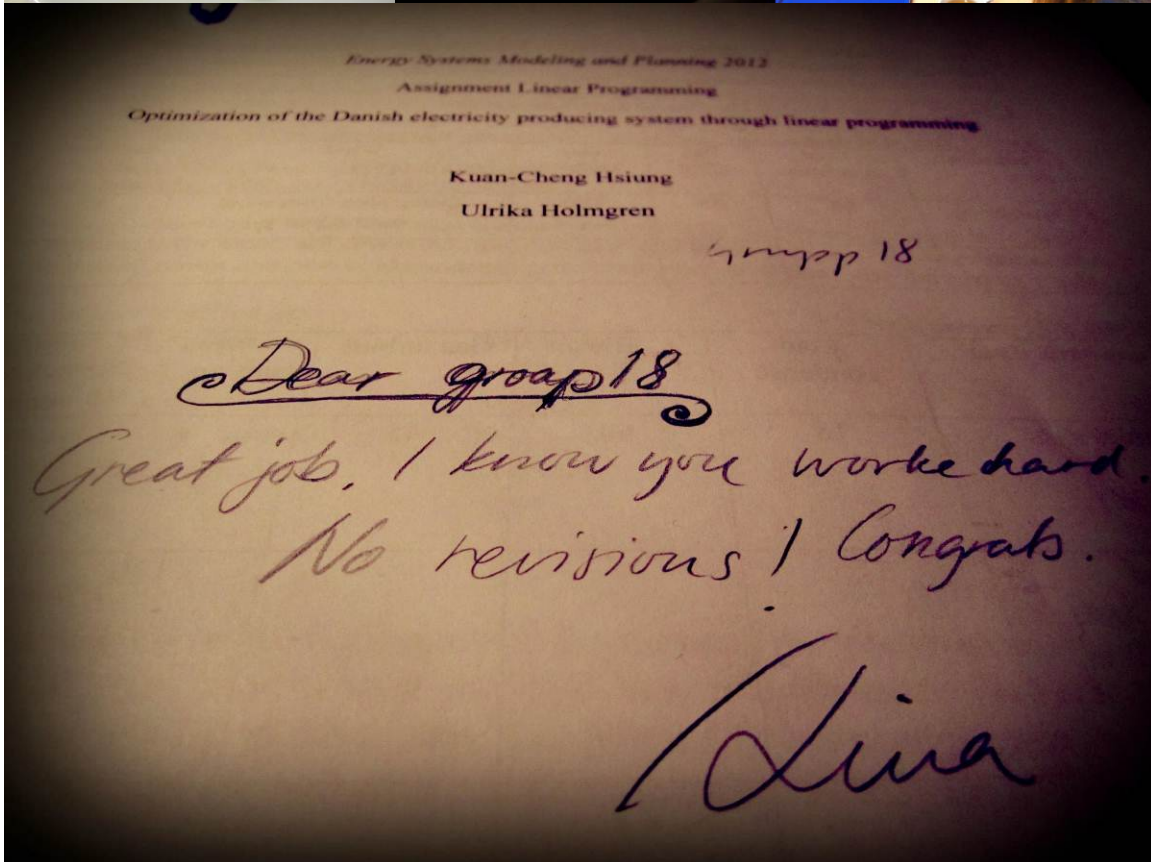 Energy Systems Modeling and Planning 2012
Assignment Linear Programming
Optimization of the Danish electricity producing system through linear programming
Kuan-Cheng Hsiung
Ulrika Holmgren
grupp 18
Dear group 18
Great job, I know you worke hard.
No revisions! Congrats.
Lina